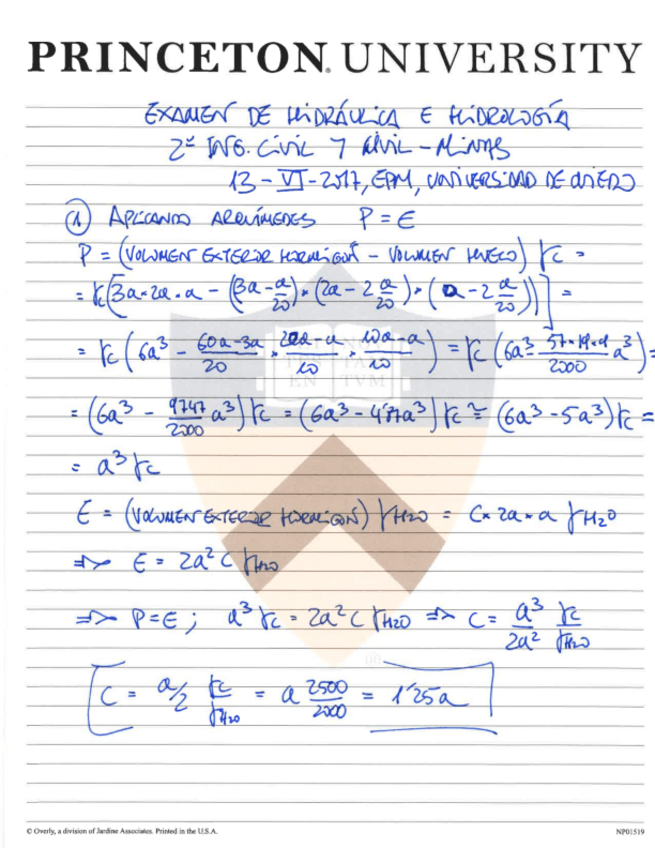 PRINCETON UNIVERSITY
EXAMEN DE HIDRÁULICA E HIDROLOGÍA
2º ING. CIVIL Y CIVIL - MINAS
13 - VI - 2017, EPM, UNIVERSIDAD DE OVIEDO
① APLICANDO ARQUÍMEDES P = E
P = (VOLUMEN EXTERIOR HORMIGÓN - VOLUMEN HUECO) γc =
= γc[3a×2a×a - (3a - a/20)×(2a - 2 a/20)×(a - 2 a/20)] =
= γc (6a³ - 60a-3a/20 × 20a-a/10 × 10a-a/10) = γc (6a³ - 57×19×9/2000 a³) =
= (6a³ - 9747/2000 a³) γc = (6a³ - 4'87a³) γc ≃ (6a³ - 5a³) γc =
= a³ γc
E = (VOLUMEN EXTERIOR HORMIGÓN) γH2O = C × 2a × a γH2O
=> E = 2a² C γH2O
=> P = E ; a³ γc = 2a² C γH2O => C = a³/2a² γc/γH2O
C = a/2 γc/γH2O = a 2500/2000 = 1'25a
© Overly, a division of Jardine Associates. Printed in the U.S.A.
NP01519